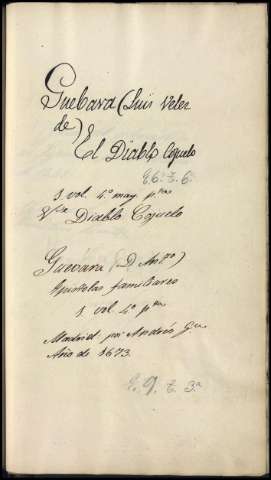 Guebara (Luis Velez
de)
El Diablo Cojuelo
E. 6. t. 6.
1 vol. 4º may. pta
Vta Diablo Cojuelo
Guevara (D. Antº)
Epistolas familiares
1 vol. 4º pta
Madrid por Andrés Gª
Año de 1673.
E. 9. t. 3.a